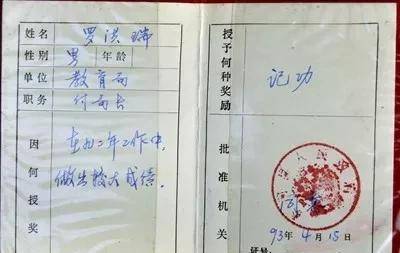 姓名 罗洪璘
性别 男 年龄
单位 教育局
职务 付局长
因何授奖
在九二年工作中,
做出较大成绩.
授予何种奖励
记功
批准机关
93年 4 月 15 日
证号: